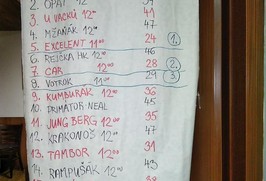 2. OPAT 12°° 39
3. U VACKŮ 12°° 41
4. MŽANÁK 12°° 47
5. EXCELENT 11°° 24 1.
6. ŘEZÍČKA HK 12°° 46
7. CAR 12°° 28 2.
8. VOTROK 11°° 29 3.
9. KUMBURÁK 12°° 36
10. PRIMÁTOR NEAL 45
11. JUNGBERG 12°° 35
12. KRAKONOŠ 12°° 47
13. TAMBOR 12°° 31
14. RAMPUŠÁK 12°° 43
38